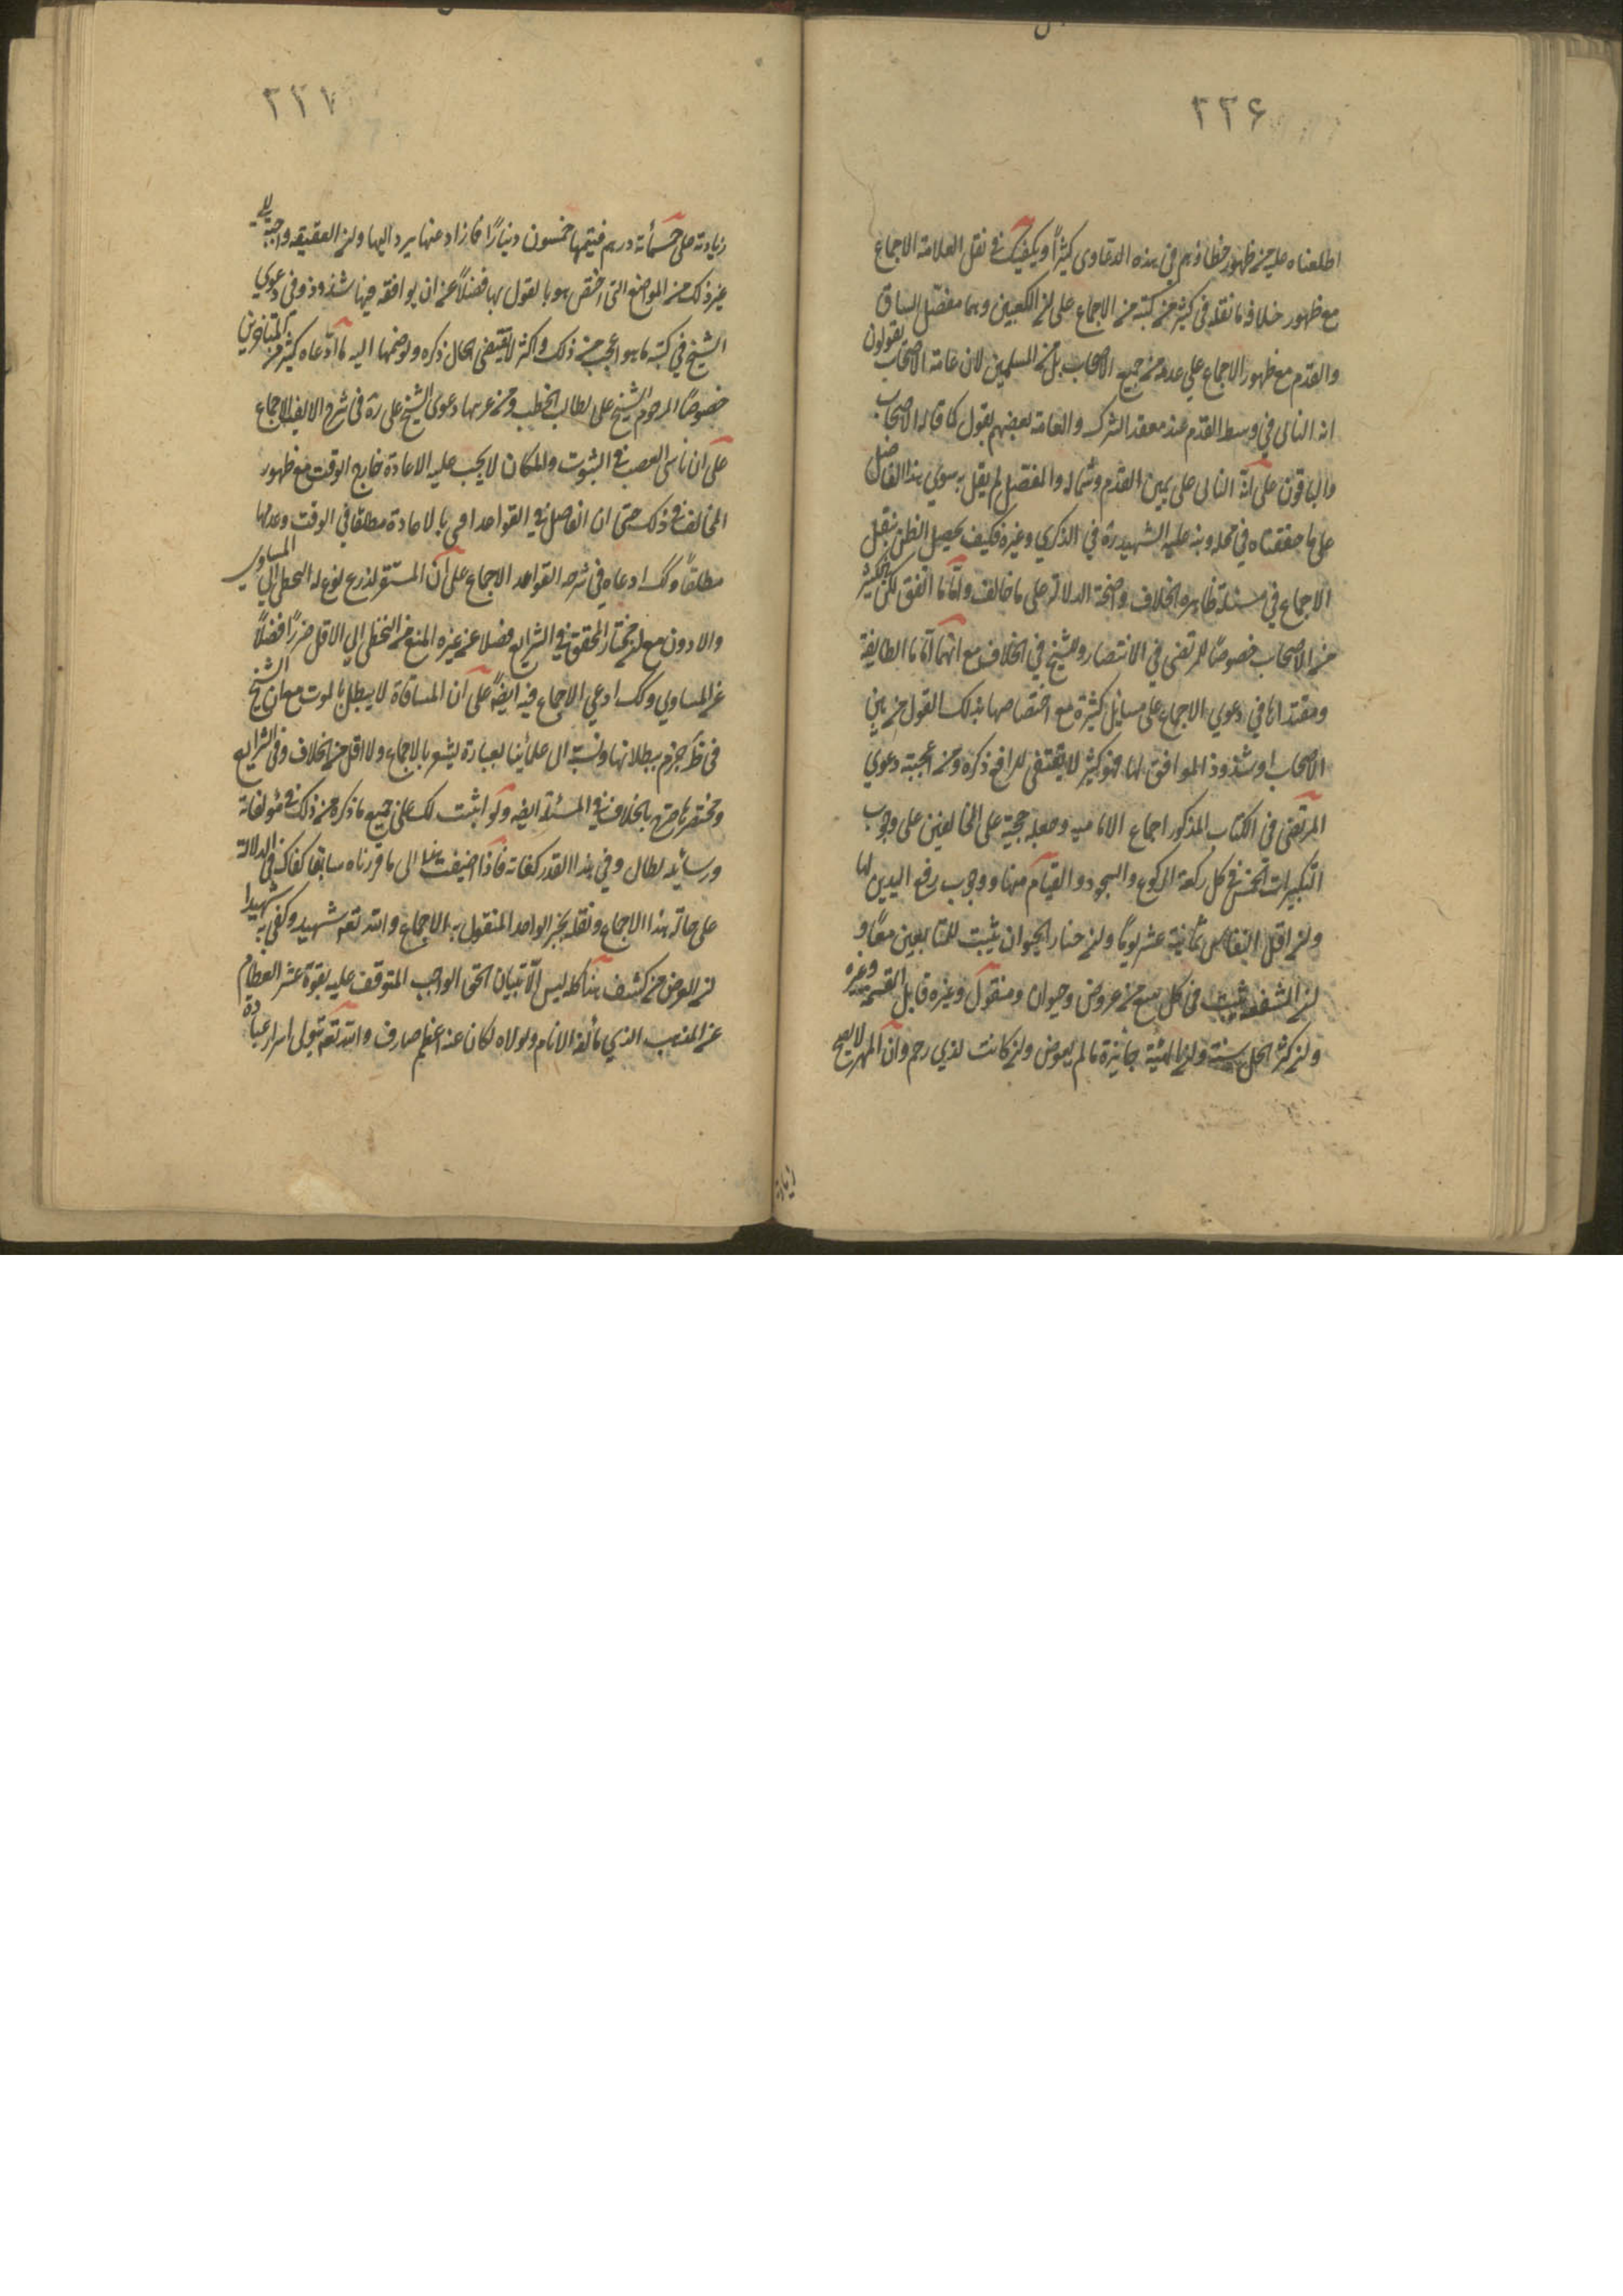 ٢٢۶
اطلعناه عليه من ظهور خطاؤهم في هذه الدعاوى كثيرًا ويكفيك في نقل العلامة الاجماع
مع ظهور خلافه ما نقله في كثير من كتبه من الاجماع على ان الكعبين هما مفصل الساق
والقدم مع ظهور الاجماع على عدمه من جميع الاصحاب بل من المسلمين لان عامة الاصحاب يقولون
انه الناتي في وسط القدم عند معقد الشرك والعامة بعضهم يقول كما قاله الاصحاب
والباقون على انه الناتي على يمين القدم وشماله والمفصل لم يقل به سوى هذا الفاضل
على ما حققناه في محله ونبه عليه الشهيد ره في الذكرى وغيره فكيف يحصل الظن بنقل
الاجماع في مسئلة ظاهره الخلاف واضحة الدلالة على ما خالف واما ما اتفق لكثير
من الاصحاب خصوصًا المرتضى في الانتصار والشيخ في الخلاف مع انهما اماما الطايفة
ومقتداها في دعوى الاجماع على مسايل كثيرة مع اختصاصهما بذلك القول من بين
الاصحاب او شذوذ الموافق لهما فهو كثير لا يقتضى للرافع ذكره ومن اعجبه دعوى
المرتضى في الكتاب المذكور اجماع الامامية وجعله حجة على المخالفين على وجوب
التكبيرات الخمس في كل ركعة للركوع والسجود والقيام منها ووجوب رفع اليدين لها
وان اقل النفاس ثمانية عشر يومًا وان خيار الحيوان يثبت للمتبايعين معًا و
ان الشفعه يثبت في كل مبيع من عروض وحيوان ومنقول وغيره قابل للقسمة وغيره
وان اكثر الحمل سنة وان الهبة جائزة ما لم يعوض وان كانت لذي رحم وان المهر لا يصح
زيادة
٢٢٧
زيادته على خمسمأة درهم قيمتها خمسون دينارًا فما زاد عنها يرد اليها وان العقيقه واجبة الى
غير ذلك من المواضع التي اختص هو بالقول بها فضلاً عن ان يوافقه فيها شذوذ وفى دعوى
الشيخ في كتبه ما هو اعجب من ذلك واكثر لا يقتضى الحال ذكره ولو ضمها اليه ما ادّعاه كثير من المتأخرين
خصوصًا المرحوم الشيخ على لطال الخطب ومن غريبها دعوى الشيخ على ره في شرح الالفيه الاجماع
على ان ناسى الغصب في الثوب والمكان لا يجب عليه الاعادة خارج الوقت مع ظهور
المخالف في ذلك حتى ان الفاضل في القواعد افتى بالاعادة مطلقا في الوقت وعدمها
مطلقًا وكذا ادعاه في شرح القواعد الاجماع على ان المستقر لزرع نوع له التخطى الى المساوى
والادون مع ان مختار المحقق في الشرايع فضلا عن غيره المنع من التخطى الى الاقل ضررًا فضلًا
عن المساوى وكك ادعى الاجماع فيه ايضًا على ان المساقاة لا يبطل بالموت مع ان الشيخ
في ط جزم ببطلانها ونسبته الى علمائنا بعبارة يشعر بالاجماع ولا اقل من الخلاف وفى الشرايع
ومختصرها صرح بالخلاف في المسئلة ايضه ولو اثبت لك على جميع ما ذكره من ذلك في مؤلفاته
ورسايله لطال وفي هذا القدر كفاية فاذا اضيف هذا الى ما قررناه سابقا كفاك في الدلالة
على حالة هذا الاجماع ونقله بخبر الواحد المنقول به الاجماع والله تعم شهيد وكفى به شهيدا
ان الغرض من كشف هناك ليس الا تبيان الحق الواجب المتوقف عليه بقوة عشر العظام
عن المذهب الذي يألفه الانام ولولاه لكان عنه اعظم صارف والله تعم يتولى اسرار عباده